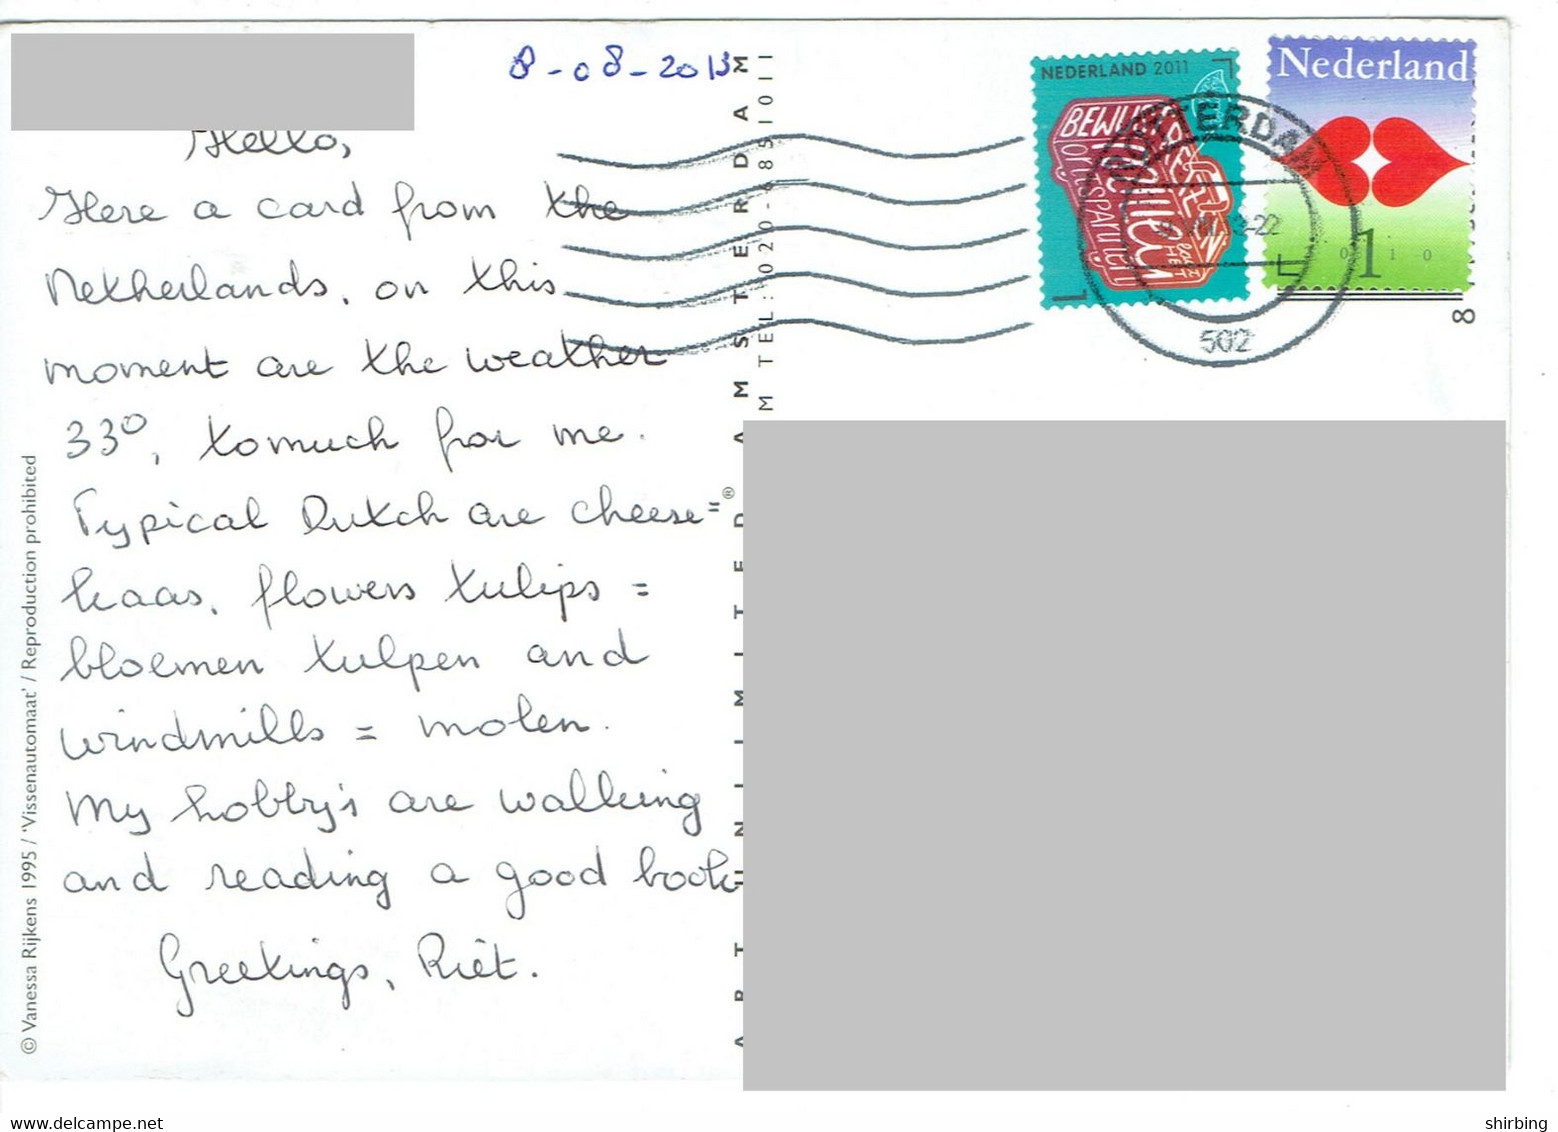 8-08-2013
Hello,
Here a card from the
Netherlands, on this
moment are the weather
33°, tomuch for me.
Typical Dutch are cheese"
kaas, flowers tulips =
bloemen tulpen and
windmills = molen.
My hobby's are walking
and reading a good book
Greetings, Riet.
© Vanessa Rijkens 1995 / 'Vissenautomaat' / Reproduction prohibited
ART UNLIMITED® AMSTERDAM
TEL: 020-6851011
NEDERLAND 2011
Nederland
1
2010
AMSTERDAM
502
8
delcampe.net
shirbing